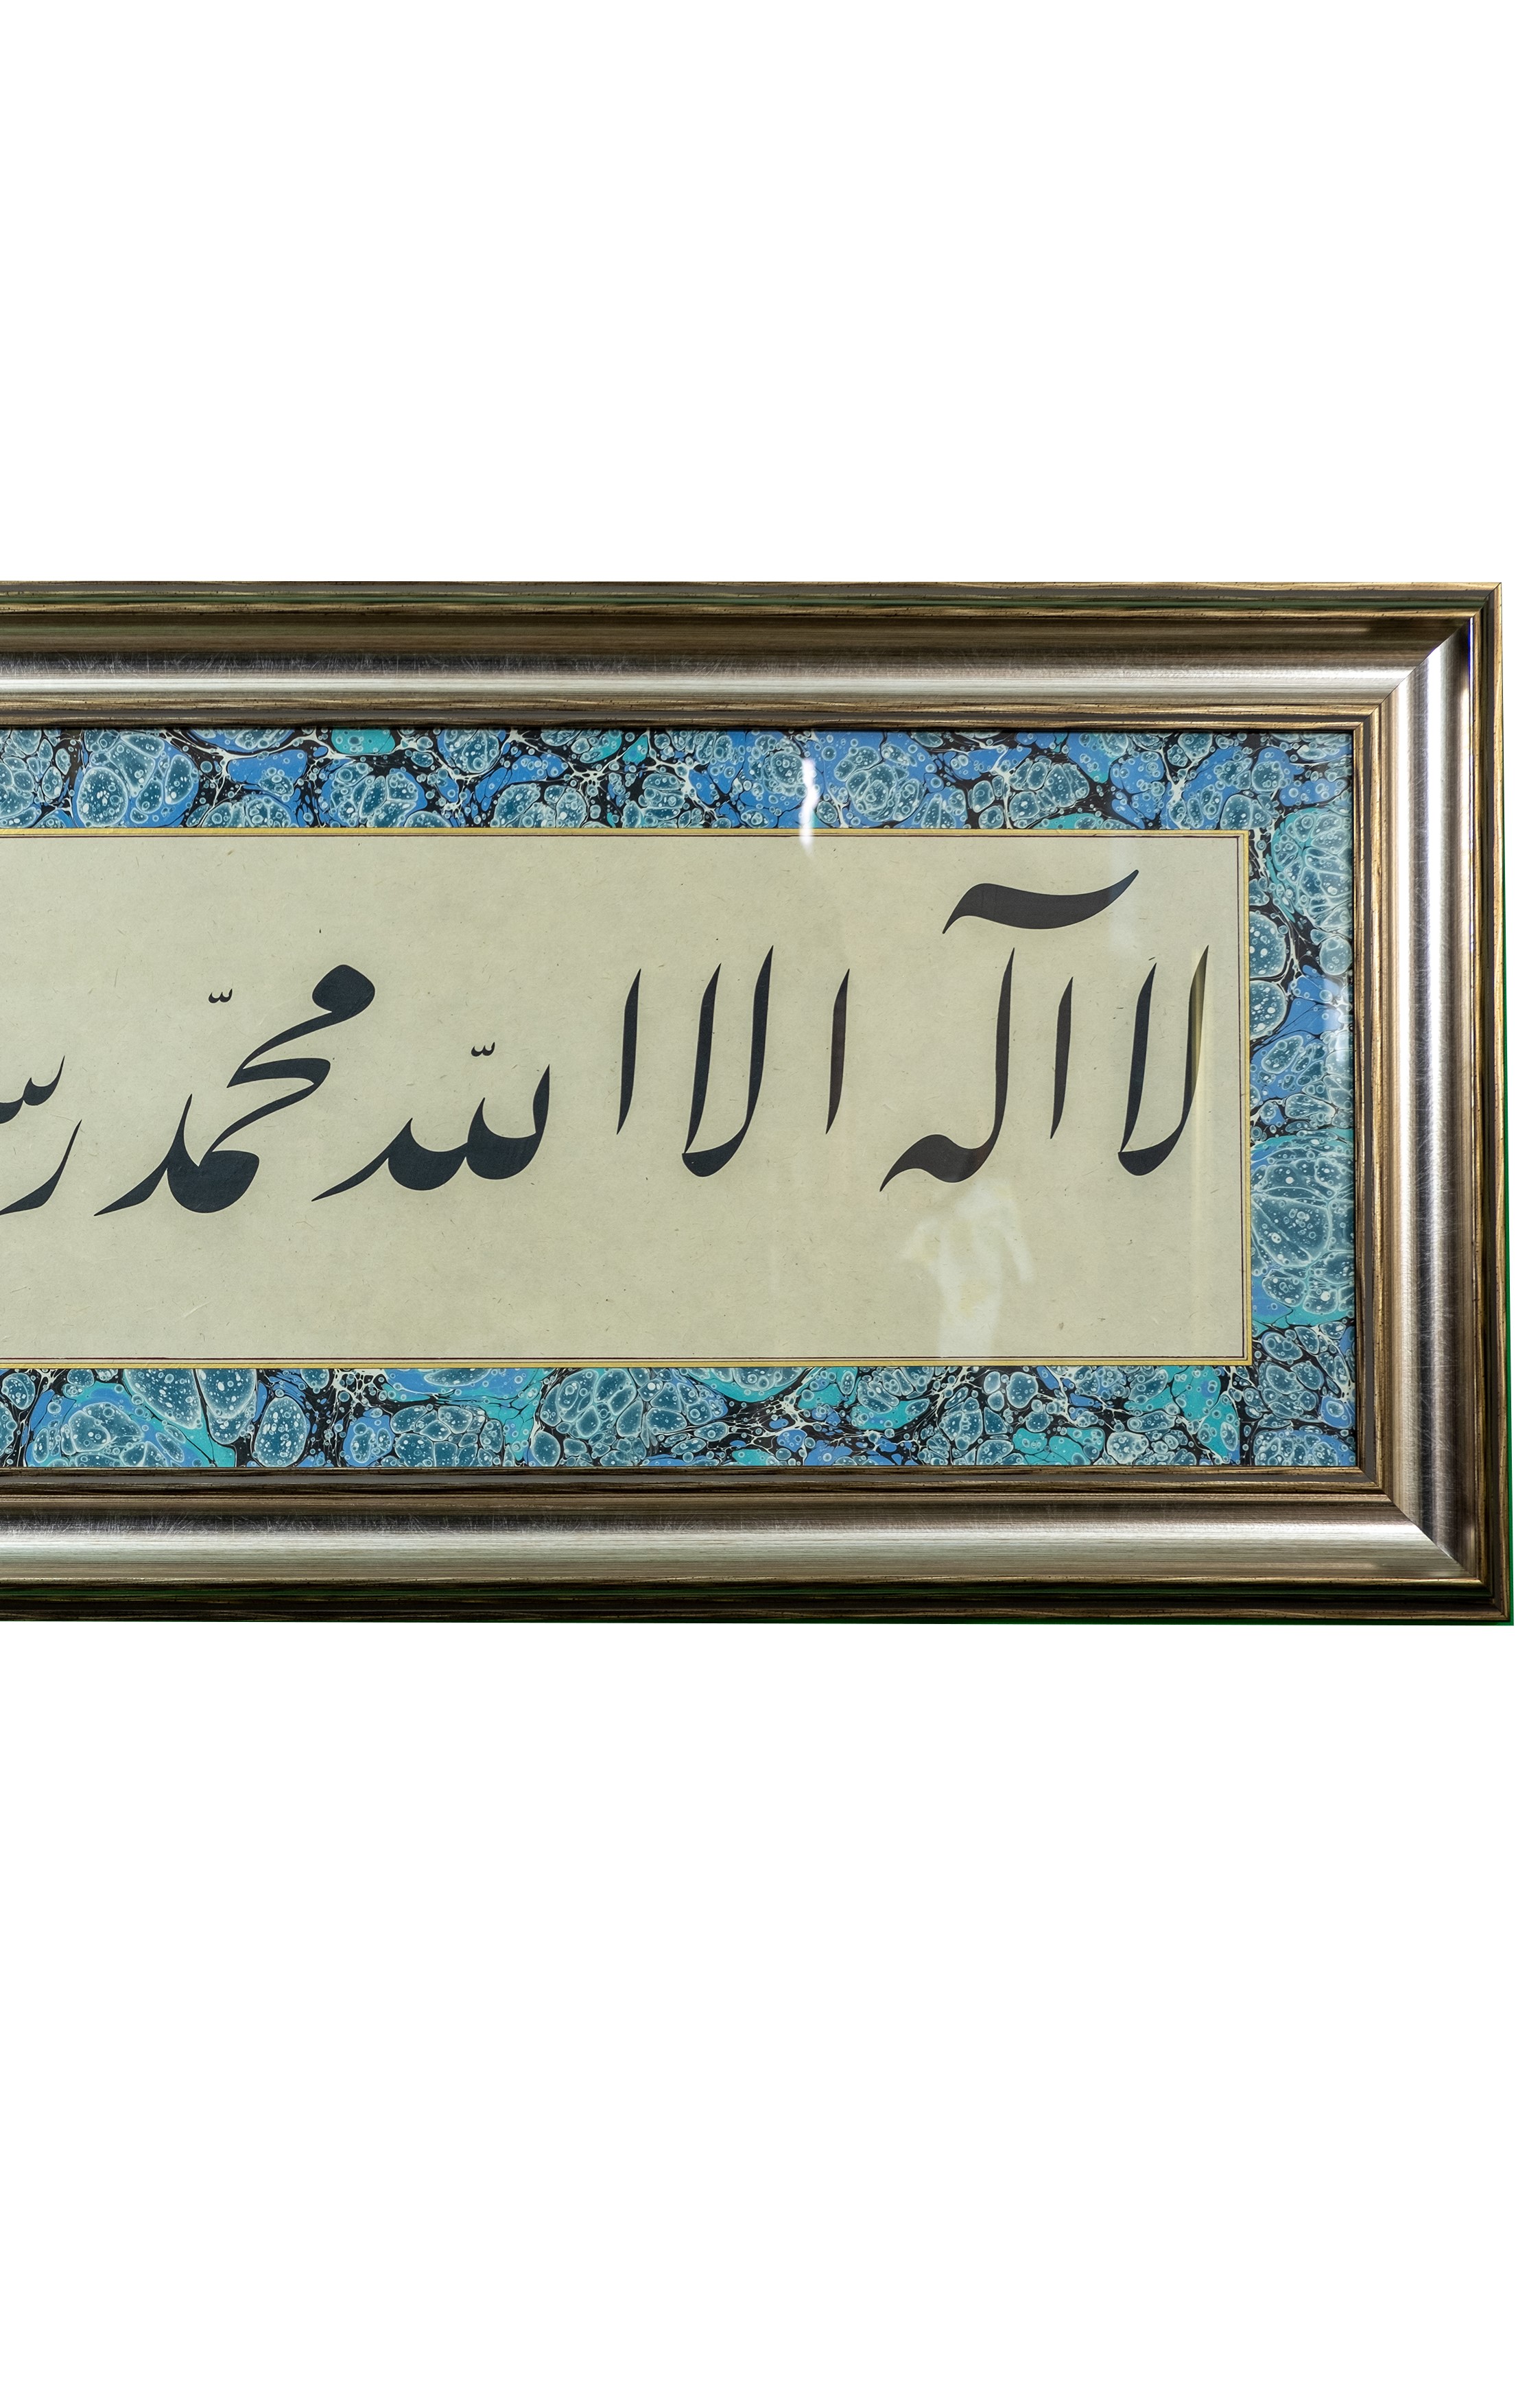 لا اله الا الله محمّد رس